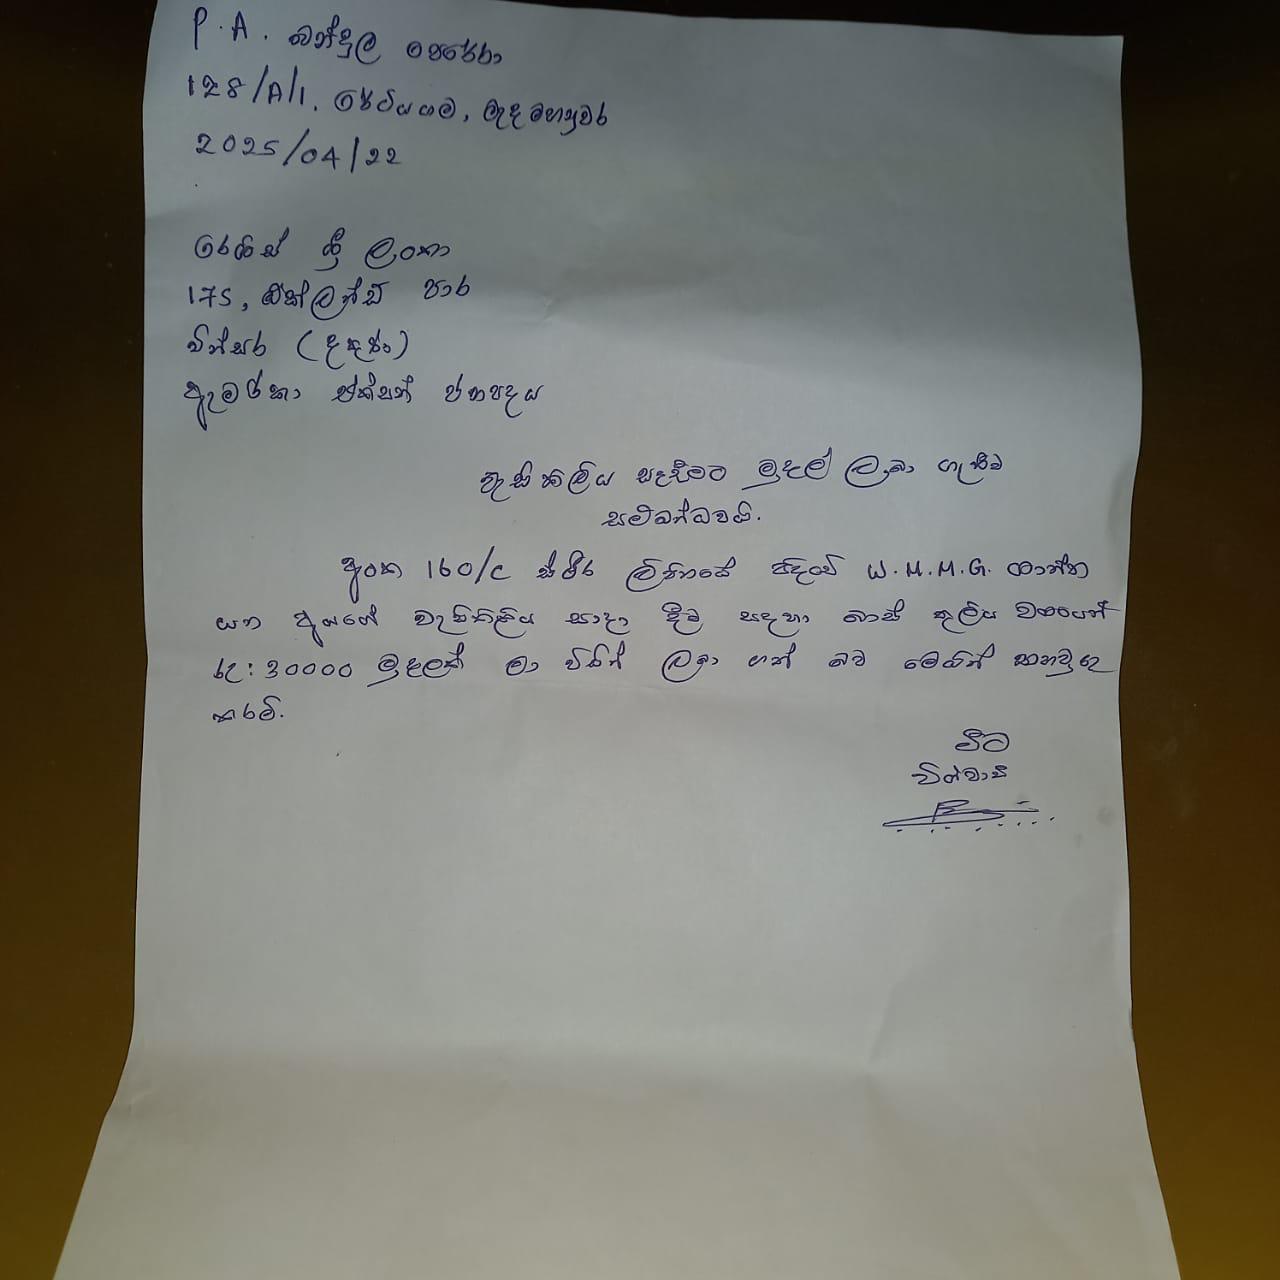 P.A. බන්දුල පෙරේරා
128/A/1, මැදමහනුවර
2025/04/22
රෙයිස් ශ්‍රී ලංකා
175, පාර
වින්සර් (දකුණ)
ඇමරිකා එක්සත් ජනපදය
වැසිකිලිය සෑදීමට මුදල් ලබා ගැණීම
සම්බන්ධවයි.
අංක 160/C ලිපිනයේ පදිංචි W.M.M.G. ශාන්ත
යන අයගේ වැසිකිළිය සාදා දීම සදහා බාස් කුලිය වශයෙන්
රු: 30000 මුදලක් මා විසින් ලබා ගත් බව මෙයින් සහතික
කරමි.
මීට
විශ්වාසී